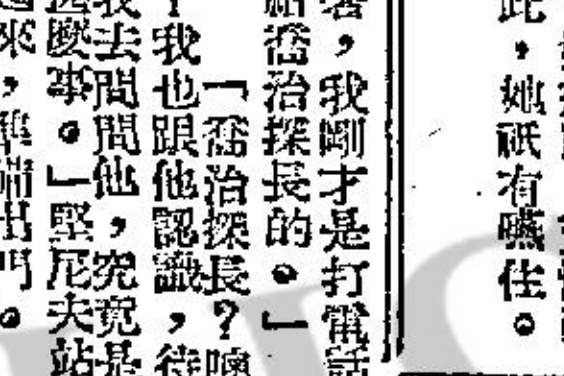 此，她祇有嚥住。
著，我剛才是打電話
給喬治探長的。」
「喬治探長？噢
？我也跟他認識，待
我去問問他，究竟是
麼事。」堅尼夫站
過來，準備出門。